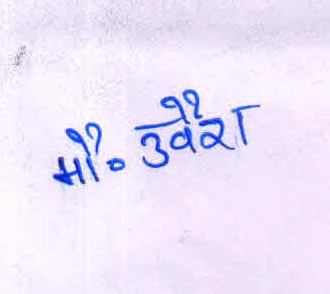 मो० उवैश